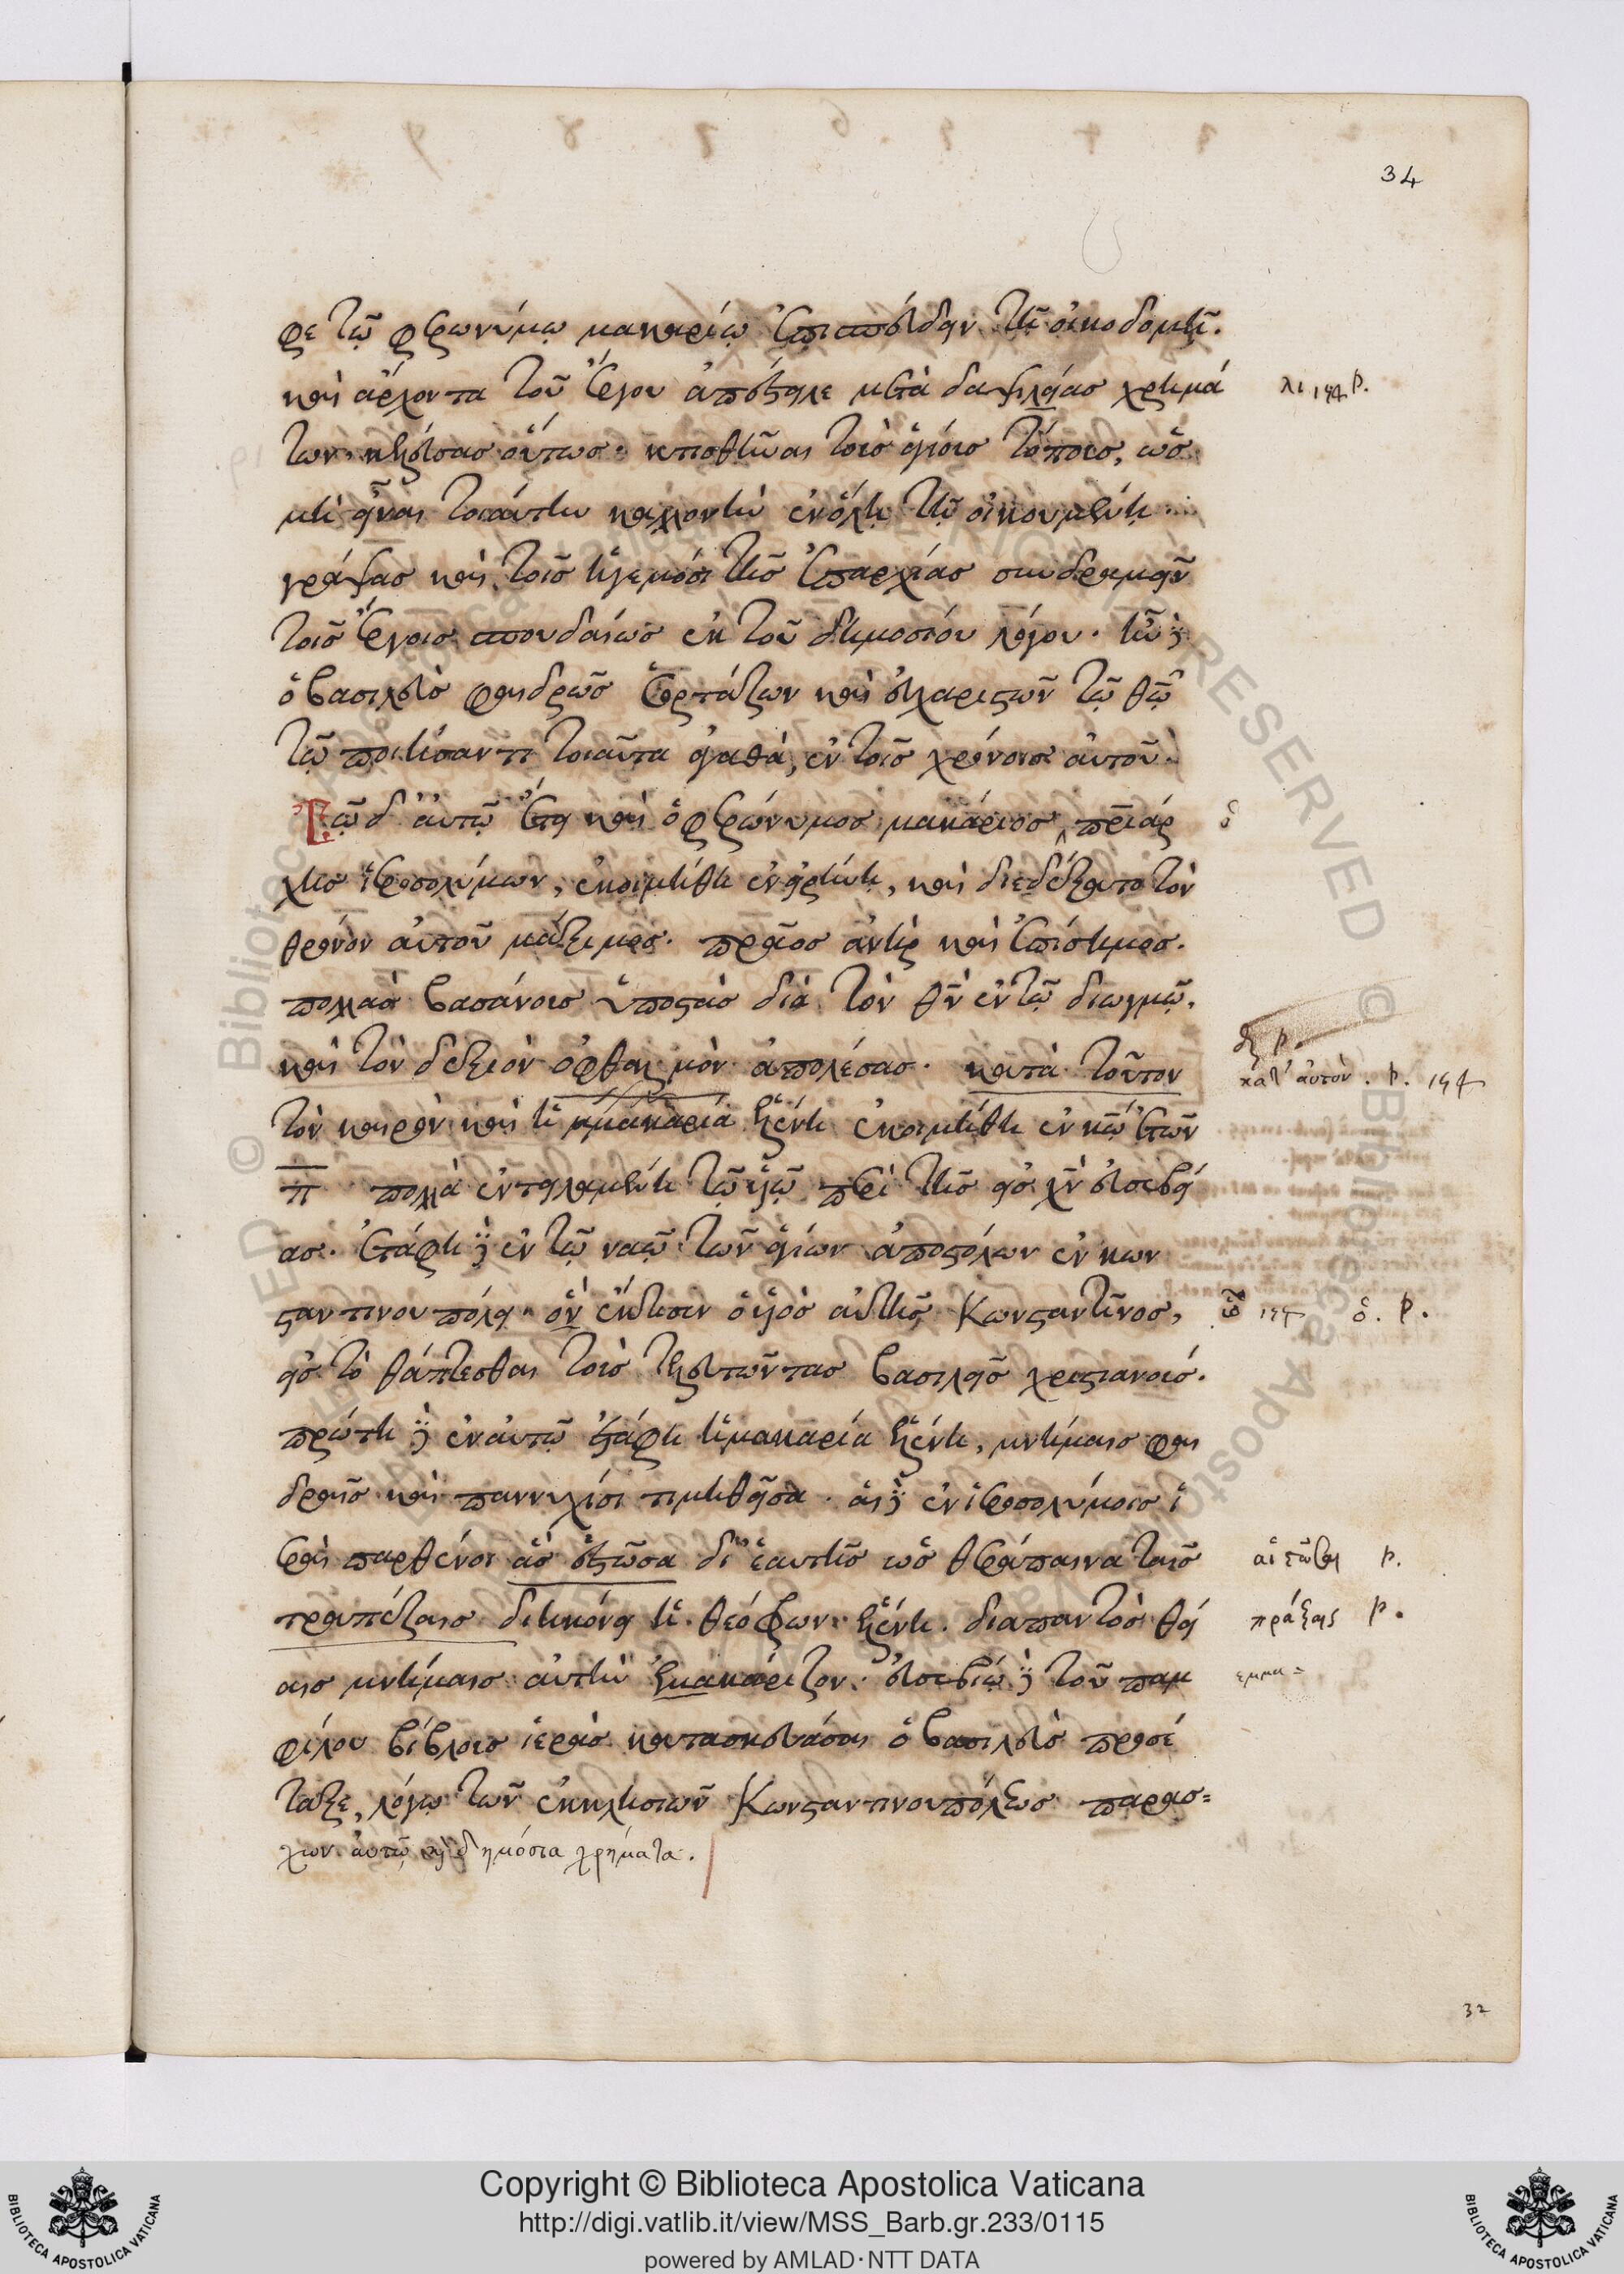 34
φε τῷ φερωνύμῳ μακαρίῳ ἐπισπεύδειν τῇ οἰκοδομῇ.
καὶ ἄρχοντα τοῦ ἔργου ἀπέστειλε μετὰ δαψιλείας χρημά
των· κελεύσας οὕτως· κτισθῆναι τοὺς ἁγίους τόπους, ὡς
μὴ εἶναι τοιαύτην καλλονὴν ἐν ὅλῃ τῇ οἰκουμένῃ·
γράψας καὶ τοῖς ἡγεμόσι τῆς ἐπαρχίας συνδραμεῖν
τοῖς ἔργοις σπουδαίως ἐκ τοῦ δημοσίου λόγου. ἦν δὲ
ὁ βασιλεὺς φαιδρῶς ἑορτάζων καὶ εὐχαριστῶν τῷ θῷ
τῷ ποιήσαντι τοιαῦτα ἀγαθὰ, ἐν τοῖς χρόνοις αὐτοῦ.
Τῷ δ' αὐτῷ ἔτει καὶ ὁ φερώνυμος μακάριος, πριάρ
χης ἱεροσολύμων, ἐκοιμήθη ἐν εἰρήνῃ, καὶ διεδέξατο τὸν
θρόνον αὐτοῦ μάξιμος. πρᾶος ἀνὴρ καὶ ἐπίσημος.
πολλὰς βασάνους ὑποστὰς διὰ τὸν θν ἐν τῷ διωγμῷ,
καὶ τὸν δεξιὸν ὀφθαλμὸν ἀπολέσας. κατὰ τοῦτον
τὸν καιρὸν καὶ ἡ μακαρία ἑλένη ἐκοιμήθη ἐν κῷ ἐτῶν
π πολλὰ ἐντειλαμένη τῷ υἱῷ περὶ τῆς εἰς χν εὐσεβεί
ας. ἐτάφη δὲ ἐν τῷ ναῷ τῶν ἁγίων ἀποστόλων ἐν κων
σταντινουπόλει· ὃν ἔκτισεν ὁ υἱὸς αὐτῆς Κωνσταντῖνος,
εἰς τὸ θάπτεσθαι τοὺς τελευτῶντας βασιλεῖς χριστιανούς.
πρώτη δὲ ἐν αὐτῷ ἐτάφη ἡ μακαρία ἑλένη, μνήμαις φαι
δραῖς καὶ παννυχίσι τιμηθεῖσα. αἱ δὲ ἐν ἱεροσολύμοις ἱ
εραὶ παρθένοι ἃς ἑστῶσα δι' ἑαυτῆς ὡς θεράπαινα ταῖς
τραπέζαις διηκόνει ἡ θεόφρων ἑλένη. διαπαντὸς θεί
αις μνήμαις αὐτὴν ἐμακάριζον. εὐσεβίῳ δὲ τοῦ παμ
φίλου βίβλους ἱερὰς κατασκευάσαι ὁ βασιλεὺς προσέ
ταξε, λόγῳ τῶν ἐκκλησιῶν Κωνσταντινουπόλεως παρασ=
χων αὐτῷ καὶ δημόσια χρήματα.
κατ' αὐτὸν. p.
ὁ. p.
πράξεις p.
εμμα=
32
Copyright © Biblioteca Apostolica Vaticana
http://digi.vatlib.it/view/MSS_Barb.gr.233/0115
powered by AMLAD·NTT DATA
BIBLIOTECA APOSTOLICA VATICANA
BIBLIOTECA APOSTOLICA VATICANA